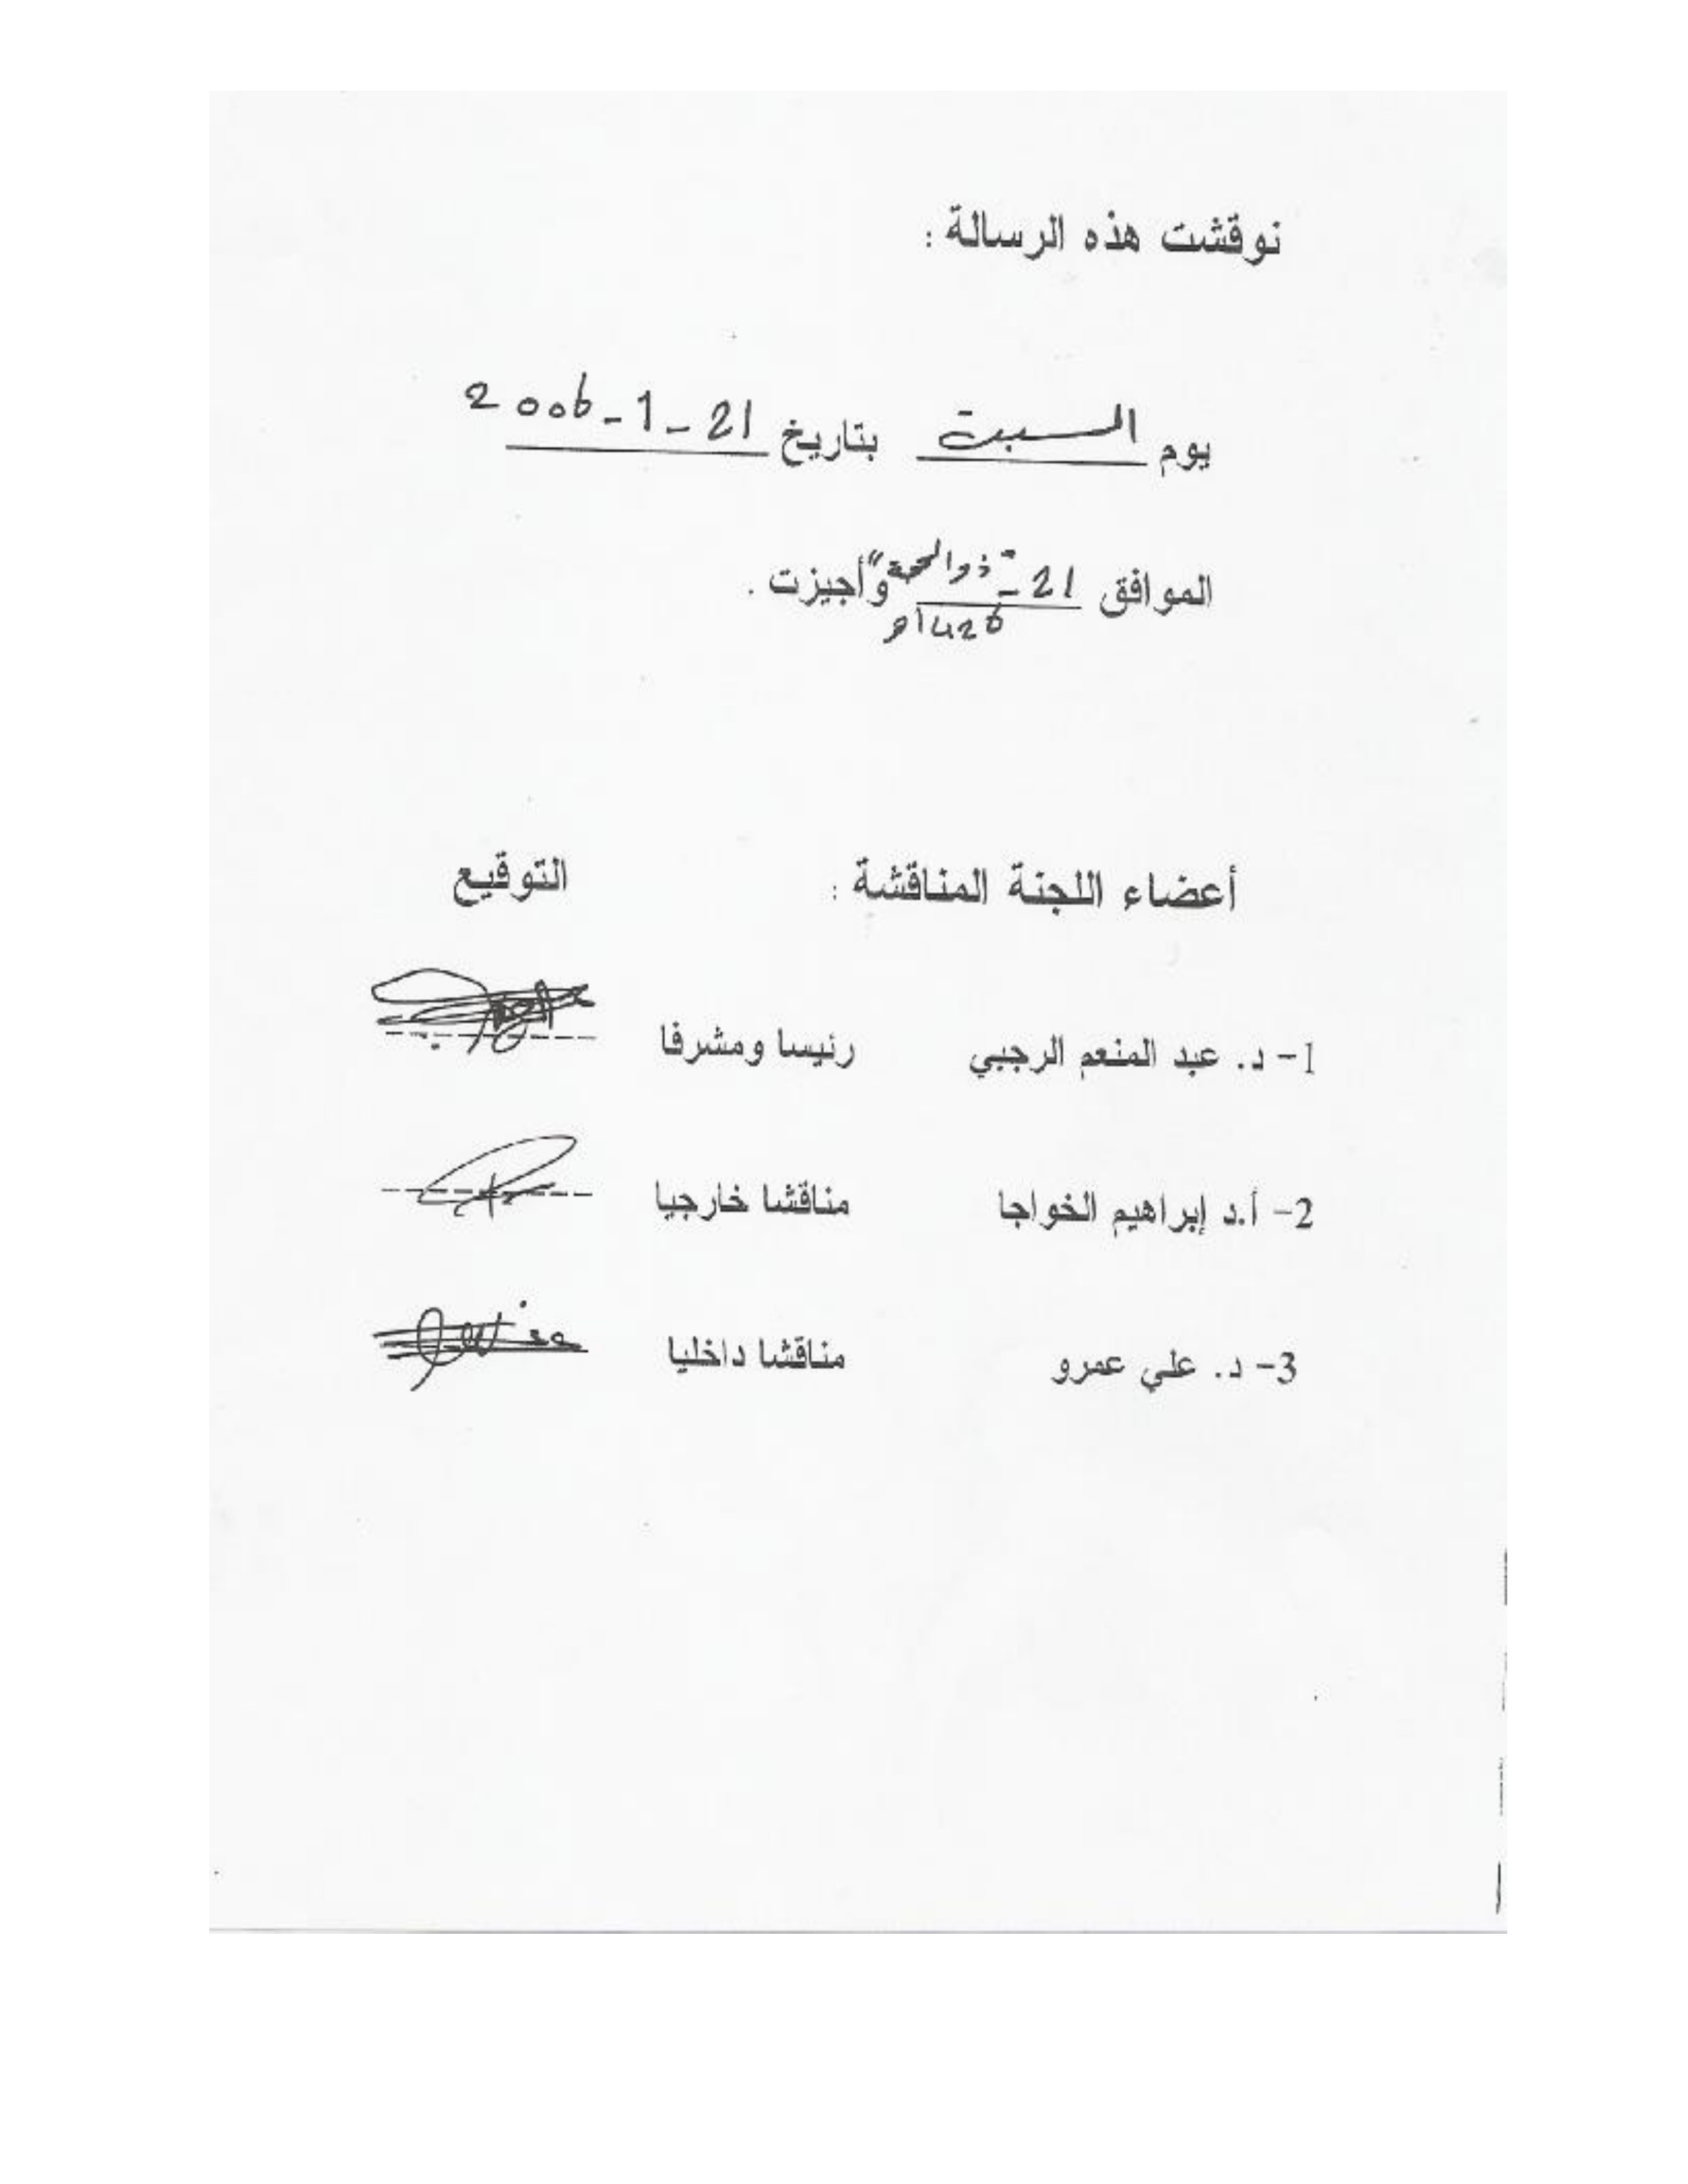 نوقشت هذه الرسالة :
يوم السبت بتاريخ 21-1-2006
الموافق 21- "ذو الحجة" وأجيزت .
1426هـ
أعضاء اللجنة المناقشة : التوقيع
1- د. عبد المنعم الرجبي رئيسا ومشرفا
2- أ.د إبراهيم الخواجا مناقشا خارجيا
3- د. علي عمرو مناقشا داخليا